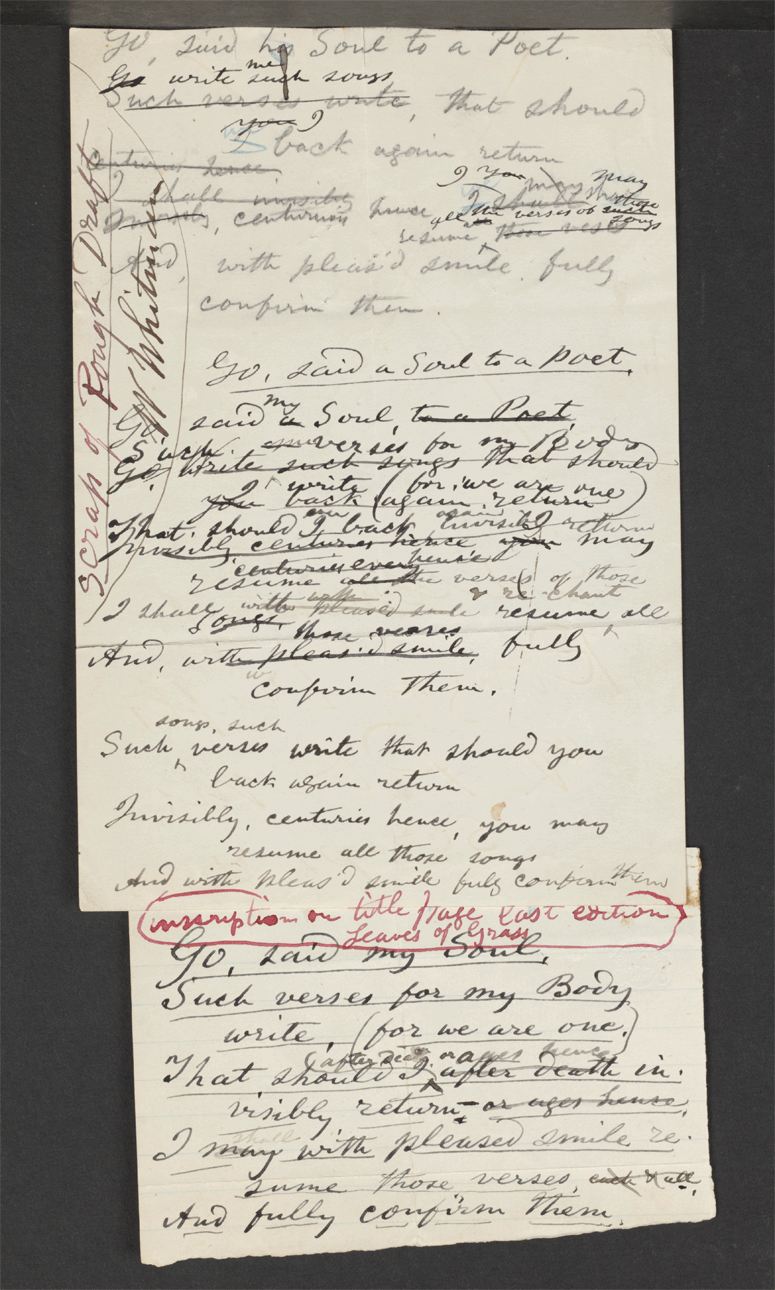 Go, said his Soul to a Poet.
me
Go write such songs
Such verses write, that should
you I
I back again return
centuries hence
I You may may
I shall invisibly I should those
Invisibly, centuries hence
all the verses of such songs
resume these verses
And, with pleas'd smile fully
confirm them.
Scraps of Rough Draft
W Whitman
Go, said a Soul to a Poet.
my
Go said a Soul, to a Poet,
Such verses for my Body
Go, write such songs that should
I write (for, we are one)
you back again return
That should I back again invisibly return
Invisibly, centuries hence you may
centuries hence
resume all the verses of those
with & re-chant
I shall with pleas'd smile resume all
songs, those verses
And, with pleas'd smile, fully
confirm them.
songs, such
Such verses write that should you
back again return
Invisibly, centuries hence, you may
resume all those songs
And with pleas'd smile fully confirm them
inscription on title page last edition
Leaves of Grass
Go, said my Soul,
Such verses for my Body
write, (for we are one,)
(after death or ages hence
That should I after death in-
visibly return, or ages hence,
shall
I may with pleased smile re-
sume those verses, each & all,
And fully confirm them.